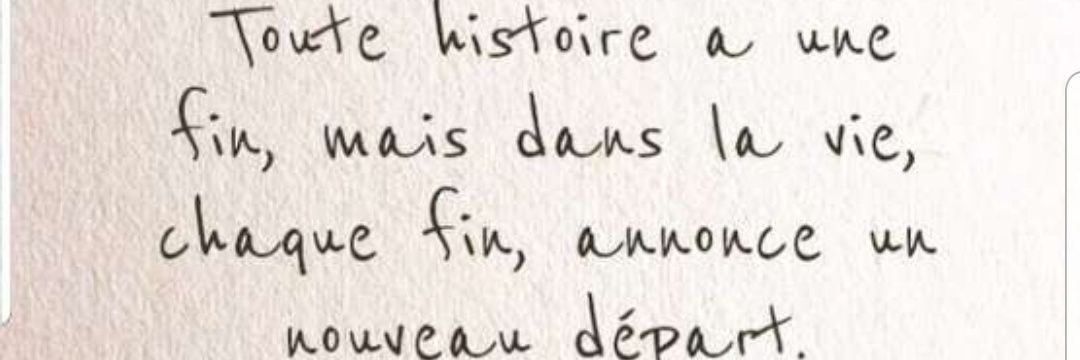 Toute histoire a une
fin, mais dans la vie,
chaque fin, annonce un
nouveau départ.